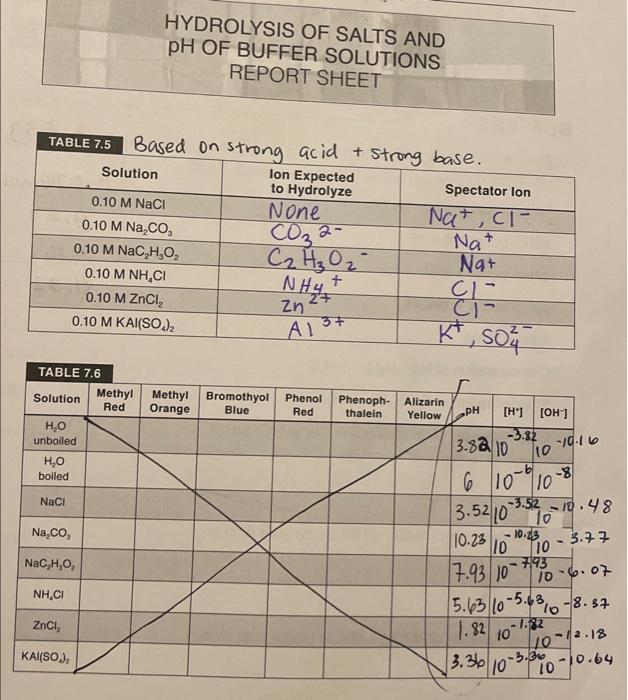 HYDROLYSIS OF SALTS AND
pH OF BUFFER SOLUTIONS
REPORT SHEET
TABLE 7.5 Based on strong acid + strong base.
Solution Ion Expected to Hydrolyze Spectator Ion
0.10 M NaCl None Na⁺, Cl⁻
0.10 M Na₂CO₃ CO₃²⁻ Na⁺
0.10 M NaC₂H₃O₂ C₂H₃O₂⁻ Na⁺
0.10 M NH₄Cl NH₄⁺ Cl⁻
0.10 M ZnCl₂ Zn²⁺ Cl⁻
0.10 M KAl(SO₄)₂ Al³⁺ K⁺, SO₄²⁻
TABLE 7.6
Solution Methyl Red Methyl Orange Bromothyol Blue Phenol Red Phenoph-thalein Alizarin Yellow pH [H⁺] [OH⁻]
H₂O unboiled 3.82 10⁻³·⁸² 10⁻¹⁰·¹⁶
H₂O boiled 6 10⁻⁶ 10⁻⁸
NaCl 3.52 10⁻³·⁵² 10⁻¹⁰·⁴⁸
Na₂CO₃ 10.23 10⁻¹⁰·²³ 10⁻³·⁷⁷
NaC₂H₃O₂ 7.93 10⁻⁷·⁹³ 10⁻⁶·⁰⁷
NH₄Cl 5.63 10⁻⁵·⁶³ 10⁻⁸·³⁷
ZnCl₂ 1.82 10⁻¹·⁸² 10⁻¹²·¹⁸
KAl(SO₄)₂ 3.36 10⁻³·³⁶ 10⁻¹⁰·⁶⁴